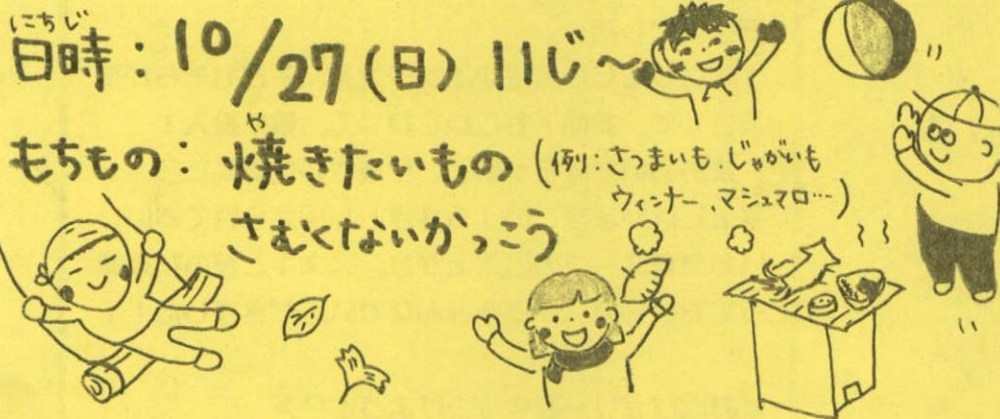 にちじ
日時:10/27(日) 11じ〜
や
もちもの:焼きたいもの(例:さつまいも、じゃがいも
ウィンナー、マシュマロ…)
さむくないかっこう